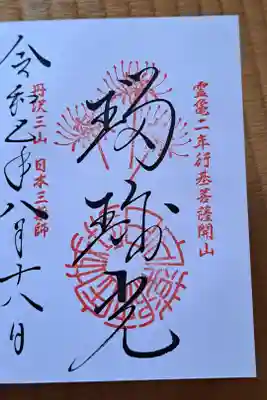 霊亀二年行基菩薩開山
瑠璃光
丹沢三山 日本三薬師
令和五年八月十八日